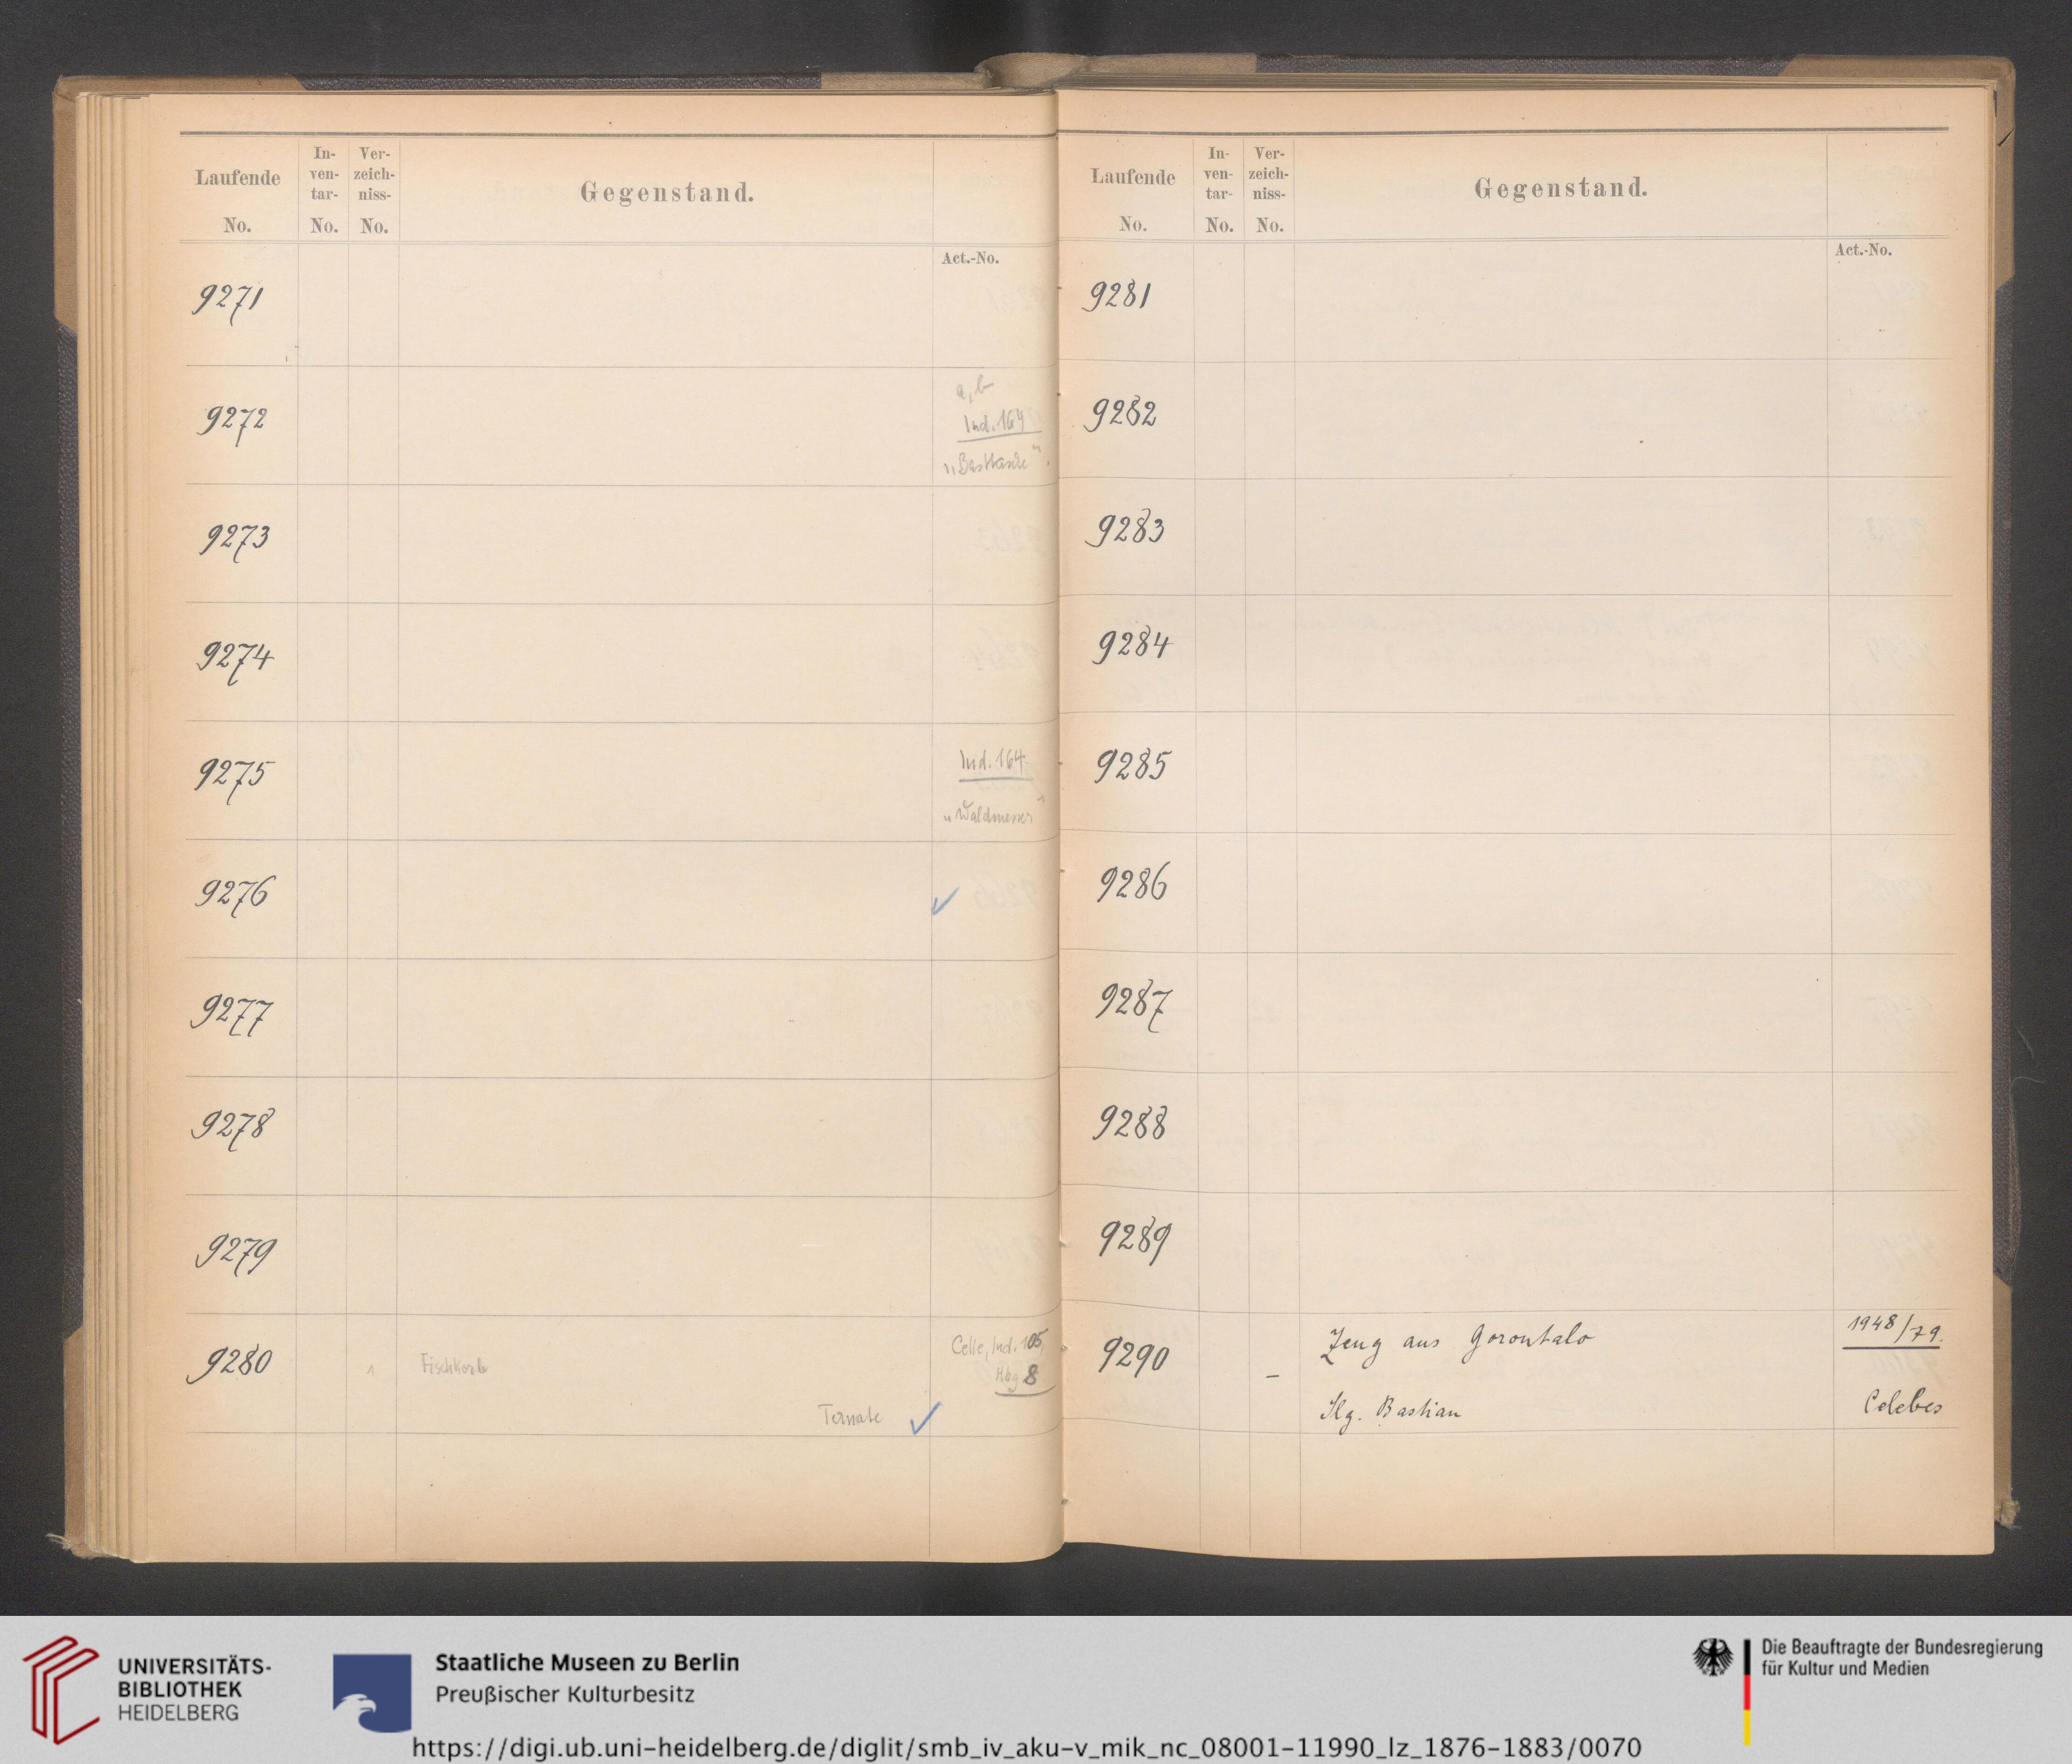 Laufende
No.
In-
ven-
tar-
No.
Ver-
zeich-
niss-
No.
Gegenstand.
Act.-No.
9271
9272
a, b
Ind. 164
„Basttasche“.
9273
9274
9275
Ind. 164
„Waldmesser“
9276
✓
9277
9278
9279
9280
1
Fischkorb
Celle, Ind. 105,
Hbg 8
Ternate ✓
Laufende
No.
In-
ven-
tar-
No.
Ver-
zeich-
niss-
No.
Gegenstand.
Act.-No.
9281
9282
9283
9284
9285
9286
9287
9288
9289
9290
–
Zeug aus Gorontalo
1948/79.
Slg. Bastian
Celebes
UNIVERSITÄTS-
BIBLIOTHEK
HEIDELBERG
Staatliche Museen zu Berlin
Preußischer Kulturbesitz
Die Beauftragte der Bundesregierung
für Kultur und Medien
https://digi.ub.uni-heidelberg.de/diglit/smb_iv_aku-v_mik_nc_08001-11990_lz_1876-1883/0070